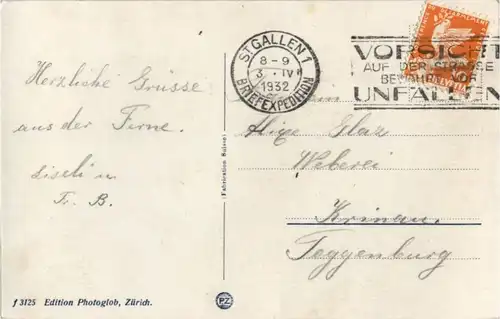 Herzliche Grüsse
aus der Firne.
Liseli u
Fr. B.
f 3125 Edition Photoglob, Zürich.
(Fabrication Suisse)
PZ
ST. GALLEN 1
8-9
3. IV
1932
BRIEFEXPEDITION
VORSICHT
AUF DER STRASSE
BEWAHRT VOR
UNFÄLLEN
Weberei
Krinau.
Toggenburg